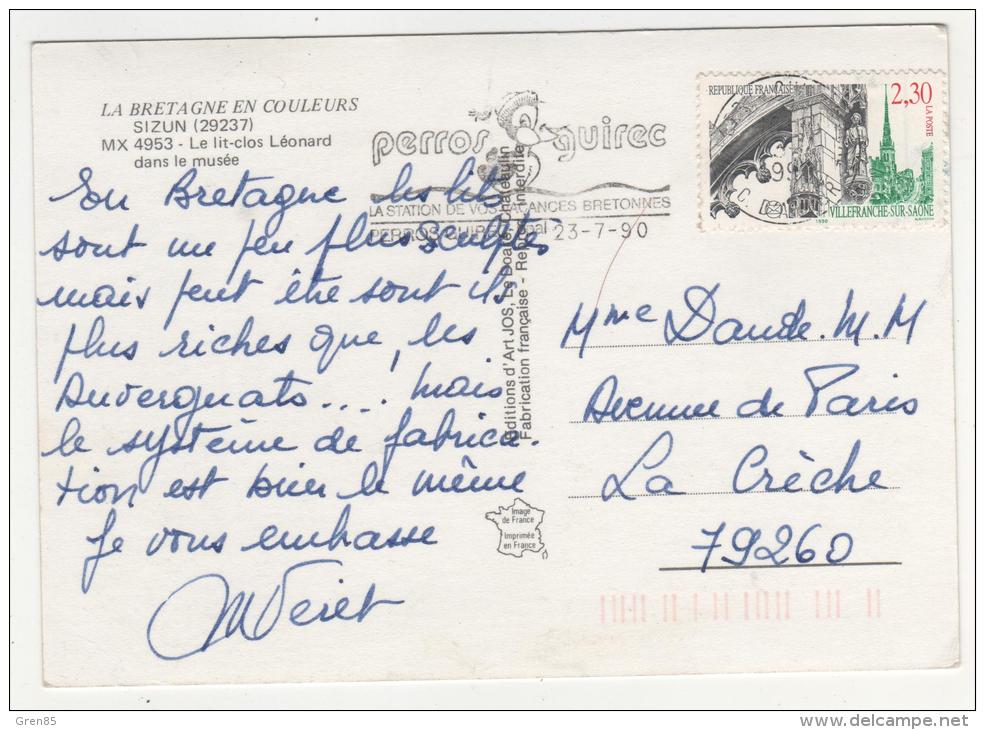 LA BRETAGNE EN COULEURS
SIZUN (29237)
MX 4953 - Le lit-clos Léonard
dans le musée
perros guirec
LA STATION DE VOS VACANCES BRETONNES
PERROS GUIREC 23-7-90
REPUBLIQUE FRANÇAISE
2,30
LA POSTE
VILLEFRANCHE-SUR-SAÔNE
1990
En Bretagne les lits
sont un peu plus sculptés
mais peut être sont ils
plus riches que les
Auvergnats .... mais
le système de fabrica-
tion est bien le même
Je vous embrasse
Editions d'Art JOS, Le Doaré, Châteaulin
Fabrication française - Interdite
Image
de France
Imprimée
en France
Mme Daude. M. M
Avenue de Paris
La Crèche
79260
Gren85
http://www.delcampe.net